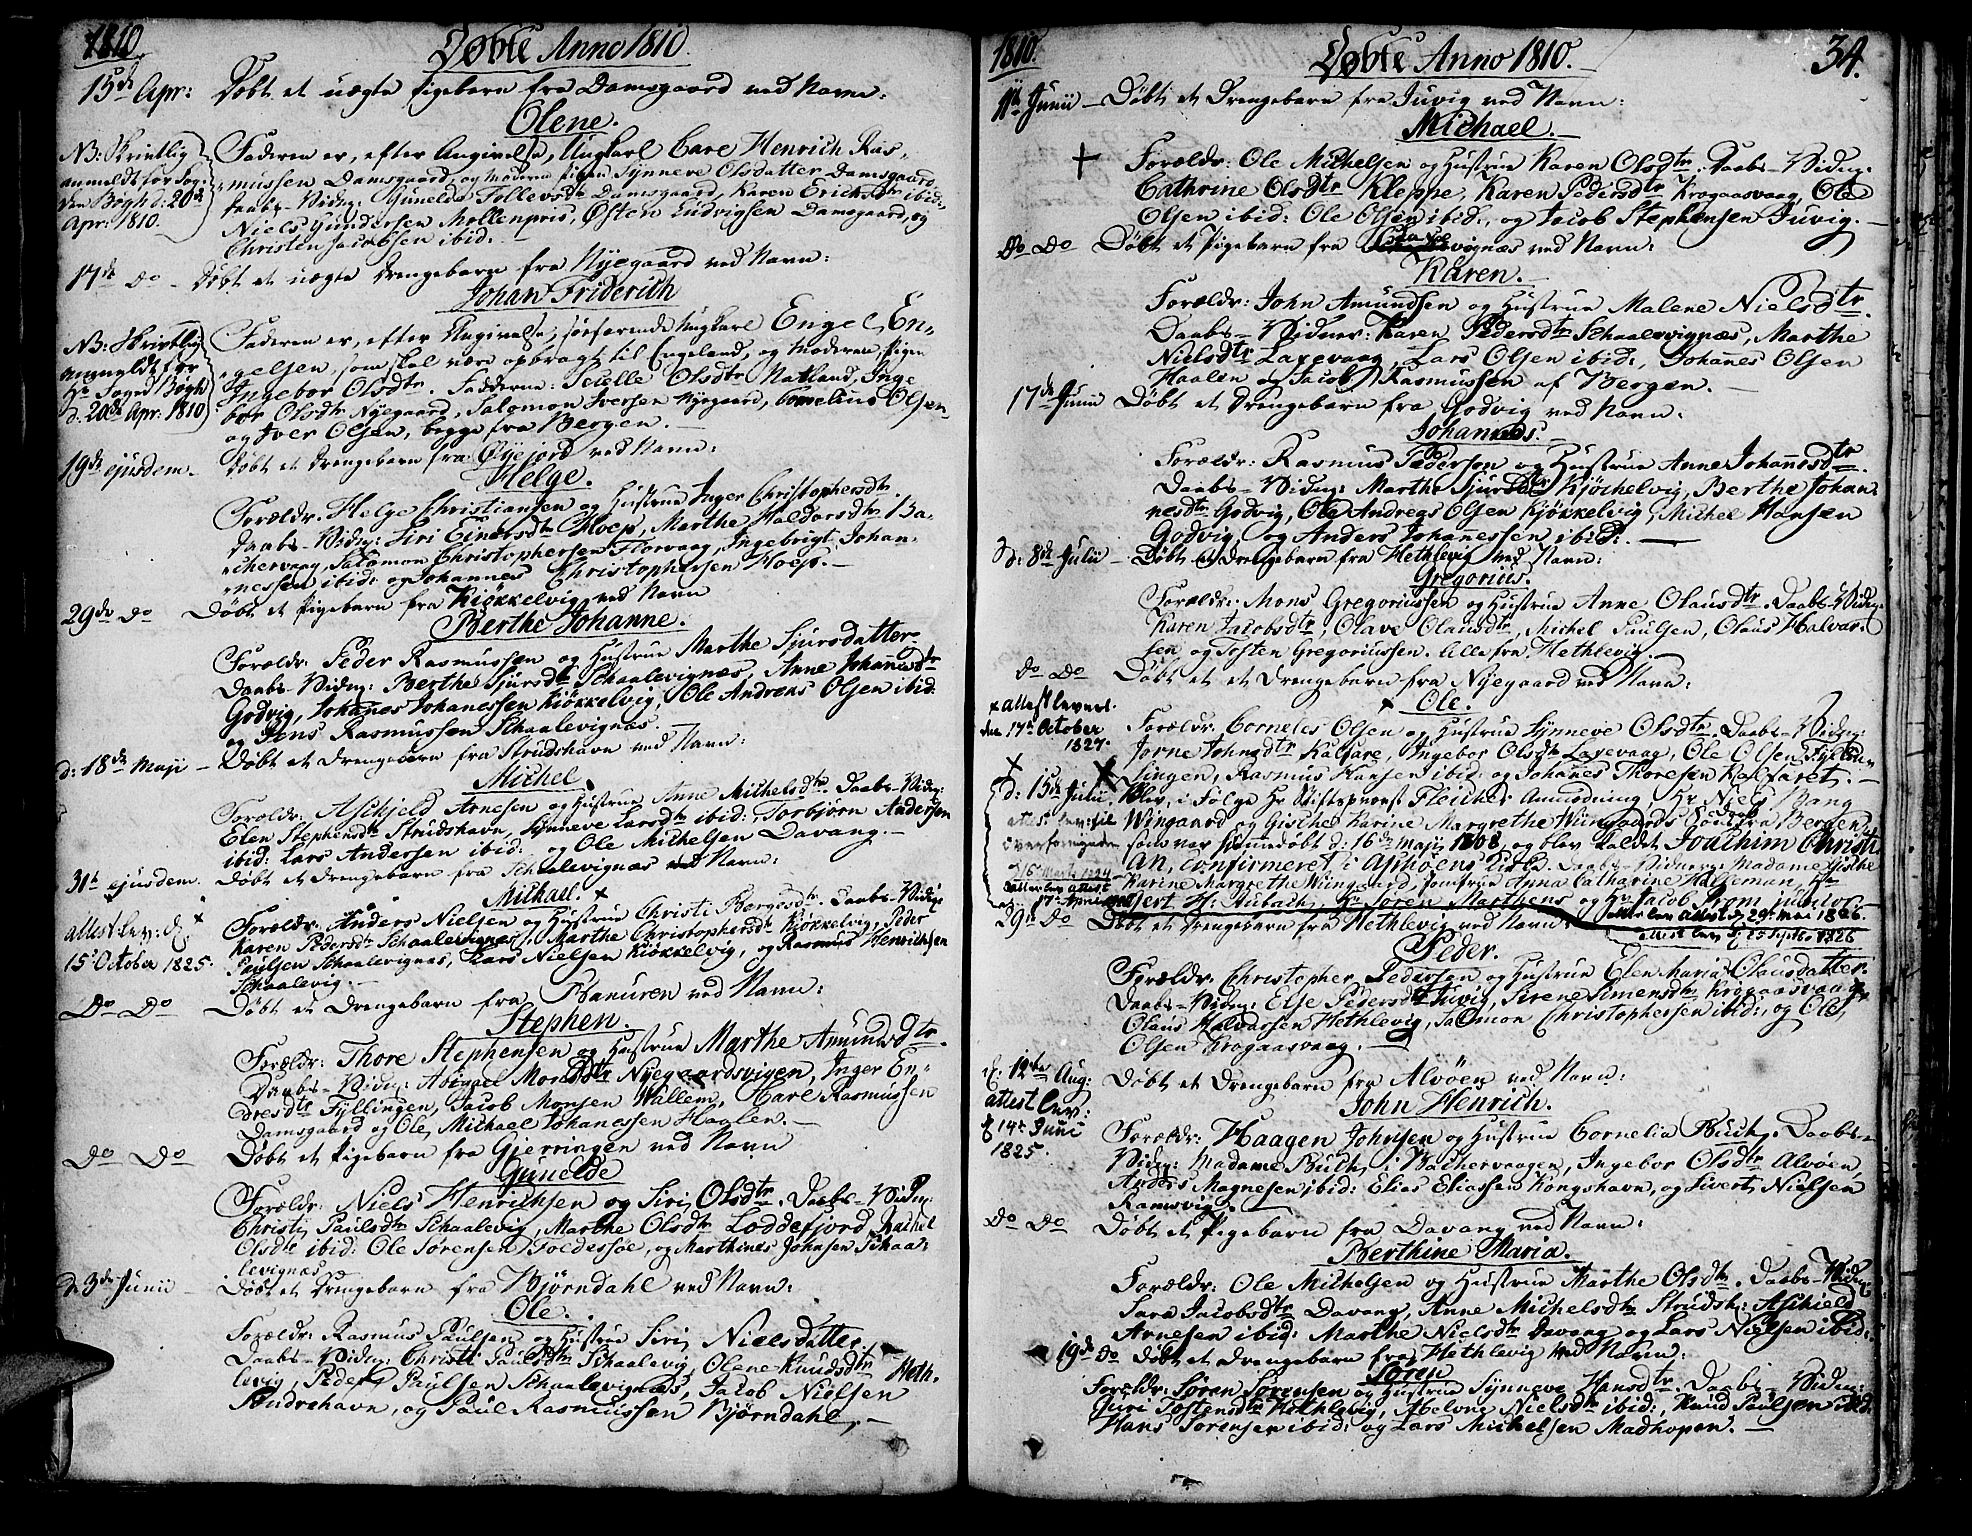 1810. Døbte Anno 1810.
15de Apr: Døbt et uægte Pigebarn fra Damsgaard ved Navn:
Olene.
NB: Skriftlig
anmeldt for Fog-
den Bøgh d. 20de
Apr: 1810.
Faderen er, efter Angivelse, Ungkarl Carl Henrich Ras-
mussen Damsgaard, og Moderen Pigen Synneve Olsdatter Damsgaard.
Daabs-Vidn: Gunelda Tollevsdtr Damsgaard, Karen Erichsdtr ibid:,
Niels Gundersen Møllenpris, Østen Ludvigsen Damsgaard, og
Christen Jacobsen ibid. —
17de do — Døbt et uægte Drengebarn fra Nyegaard ved Navn:
Johan Friderich
NB: Skriftlig
anmeldt for
Hr Foged Bøgh
d: 20de Apr: 1810
Faderen er, efter Angivelse, søefarende Ungkarl Engel En-
gelsen, som skal være opbragt til Engeland, og Moderen, Pigen
Ingebor Olsdtr. Fadderne: Seielle Olsdtr Natland, Inge
bor Olsdtr Nyegaard, Salomon Iversen Nyegaard, Cornelius Olsen
og Iver Olsen, begge fra Bergen. —
19de ejusdem — Døbt et Drengebarn fra Øyejord ved Navn:
Helge.
Forældr: Helge Christiansen og Hustrue Inger Christophersdtr.
Daabs-Vidn: Siri Einersdtr Hoep, Marthe Haldorsdtr Ba-
chervaag, Salomon Christophersen Florvaag, Ingebrigt Johan-
nessen ibid: og Johannes Christophersen Hoep. —
29de do Døbt et Pigebarn fra Kiøkkelvig ved Navn
Berthe Johanne.
Forældr: Peder Rasmussen og Hustrue Marthe Sjursdatter.
Daabs-Vidn: Berthe Sjursdtr Schaalevignæs, Anne Johannesdtr
Godvig, Johanes Johanessen Kiøkkelvig, Ole Andreas Olsen ibid:
og Jens Rasmussen Schaalevignæs.
d: 18de Maji — Døbt et Drengebarn fra Strudshavn ved Navn:
Michel
Forældr: Aschjeld Arnesen og Hustrue Anne Michelsdtr. Daabs-Vidn:
Elen Stephensdtr Strudshavn, Synneve Larsdtr ibid: Torbjørn Andersen
ibid: Lars Andersen ibid: og Ole Michelsen Davang. —
31te ejusdem. Døbt et Drengebarn fra Schaalevignæs ved Navn:
Michael. x
attest lev: d x
15 October 1825.
Forældr: Anders Nielsen og Hustrue Christi Børgesdtr. Daabs-Vidn:
Karen Pedersdtr Schaalevignæs, Marthe Christophersdtr Kiøkkelvig, Peder
Paulsen Schaalevignæs, Lars Nielsen Kiøkkelvig, og Rasmus Henrichsen
Schaalevig. —
Do Do Døbt et Drengebarn fra Hanuren ved Navn:
Stephen.
Forældr: Thore Stephensen og Hustrue Marthe Amundsdtr.
Daabs-Vidn: Abigael Monsdtr Nyegaardsvigen, Inger En-
dresdtr Fyllingen, Jacob Monsen Hallem, Carl Rasmussen
Damsgaard og Ole Michael Johanessen Haalen. —
Do Do Døbt et Pigebarn fra Gjerringen ved Navn
Gunelde
Forældr: Niels Henrichsen og Siri Olsdtr. Daabs-Vidn:
Christi Paulsdtr Schaalevig, Marthe Olsdtr Loddefjord, Rachel
Olsdtr ibid: Ole Sørensen Foldessøe, og Marthines Johnsen Schaa-
levignæs
d. 3de Junii — Døbt et Drengebarn fra Bjørndahl ved Navn:
Ole.
Forældr: Rasmus Paulsen og Hustrue Siri Nielsdatter.
Daabs-Vidn: Christi Paulsdtr Schaalevig, Olene Knudsdtr Heth-
levig, Peder Paulsen Schaalevignæs, Jacob Nielsen
Sondrehavn, og Paul Rasmussen Bjørndahl. —
1810. Døbte Anno 1810. 34.
11te Junii — Døbt et Drengebarn fra Juvig ved Navn:
Michael. —
+ Forældr: Ole Michelsen og Hustrue Karen Olsdtr. Daabs-Vidn:
Cathrine Olsdtr Kleppe, Karen Pedersdtr Krogaasvaag, Ole
Olsen ibid: Ole Olsen ibid:, og Jacob Stephensen Juvig. —
Do Do Døbt et Pigebarn fra Schaalevignæs ved Navn:
Karen. —
Forældr: John Amundsen og Hustrue Malene Nielsdtr.
Daabs-Vidner: Karen Pedersdtr Schaalevignæs, Marthe
Nielsdtr Laxevaag, Lars Olsen ibid:, Johannes Olsen
Haalen og Jacob Rasmussen af Bergen. —
17de Junii Døbt et Drengebarn fra Godvig ved Navn:
Johannes.
Forældr: Rasmus Pedersen og Hustrue Anne Johannesdtr.
Daabs-Vidn: Marthe Sjursdtr Kjøchelvig, Berthe Johan-
nesdtr Godvig, Ole Andreas Olsen Kjøkkelvig, Michel Hansen
Godvig, og Anders Johanessen ibid: —
d: 8de Julii — Døbt et Drengebarn fra Hethlevig ved Navn:
Gregorius.
Forældr: Mons Gregoriussen og Hustrue Anne Olausdtr. Daabs-Vidn:
Karen Jacobsdtr, Olave Olausdtr, Michel Paulsen, Olaus Halvar-
sen og Tosten Gregoriussen. Alle fra Hethlevig. —
Do Do Døbt et Drengebarn fra Nyegaard ved Navn:
x Ole.
x attest leveret
den 17de October
1827.
Forældr: Corneles Olsen og Hustrue Synneve Olsdtr. Daabs-Vidn:
Jorne Johnsdtr Kalfare, Ingebor Olsdtr Laxevaag, Ole Olsen Fyl-
lingen, Rasmus Hansen ibid: og Johanes Thoresen Kalfaret. —
x d: 15de Julii. Blev, i Følge Hr Stiftsprovst Fleischers Anmodning, Hr Niels Bang
attest lev: til
Wiingaard og Gische Karine Margrethe Wiingaards Søn fra Bergen,
som var hjemmedøbt d: 16de Maji 1808, og blev kaldet Joachim Christi-
an, confirmeret i Aschøens Kirke. Daabs-Vidner: Madame Gische
Karine Margrethe Wiingaard, Jomfrue Anna Catharine Halleman, Hr
H: Aubach, Hr Søren Marthens og Hr Jacob Prom junior. —
atter lev attest d 29 Mai 1826.
attest lev d 25 Septbr 1826
29de Do Døbt et Drengebarn fra Hethlevig ved Navn:
Peder.
Forældr: Christopher Pedersen og Hustrue Elen Maria Olausdatter.
Daabs-Vidn: Else Pedersdtr Juvig, Sirene Simensdtr Krogaasvaag,
Olaus Halvarsen Hethlevig, Salomon Christophersen ibid:, og Ole
Olsen Krogaasvaag. —
d: 12te Aug: Døbt et Drengebarn fra Alvøen ved Navn:
John Henrich.
attest lev:
d 14de Juni
1825.
Forældr: Haagen Johnsen og Hustrue Cornelia Buch. Daabs-
Vidn: Madame Buch i Bachervaagen, Ingebor Olsdtr Alvøen,
Anders Magnesen ibid: Elias Eliassen Kongshavn, og Sivert Nielsen
Ramsvig. —
Do Do Døbt et Pigebarn fra Davang ved Navn:
Berthine Maria.
Forældr: Ole Michelsen og Hustrue Marthe Olsdtr. Daabs-Vidn:
Sara Jacobsdtr Davang, Anne Michelsdtr Strudsh: Aschield
Arnesen ibid: Marthe Nielsdtr Davang og Lars Nielsen ibid:
19de do Døbt et Drengebarn fra Hethlevig ved Navn:
Søren
Forældr: Søren Sørensen og Hustrue Synneve Hansdtr. Daabs-Vidn:
Guri Tostensdtr Hethlevig, Abelone Nielsdtr ibid:, Knud Paulsen ibid.
Hans Sørensen ibid: og Lars Michelsen Madhopen. —